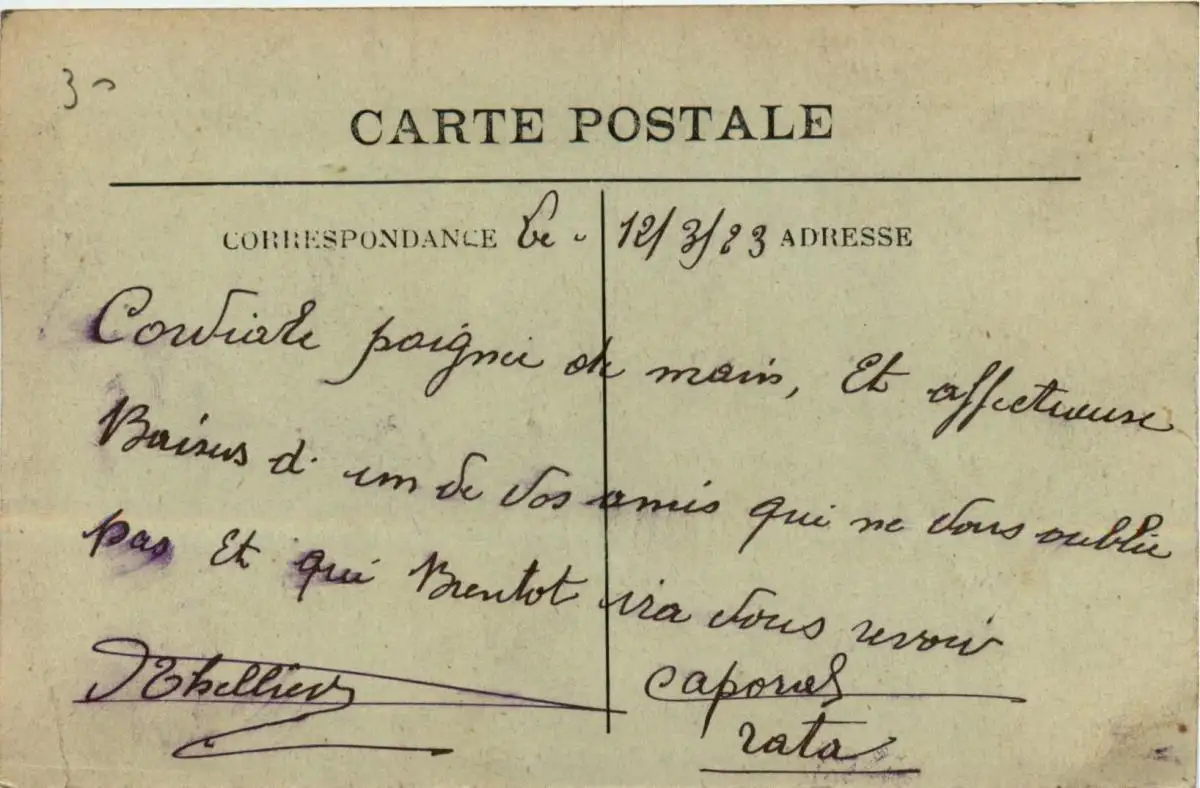 3
CARTE POSTALE
CORRESPONDANCE Le - 12/3/23 ADRESSE
Cordiale poignée de main, Et affectueuse
Baisers d'un de vos amis qui ne vous oublie
pas Et qui Bientot ira vous revoir
caporal
rata